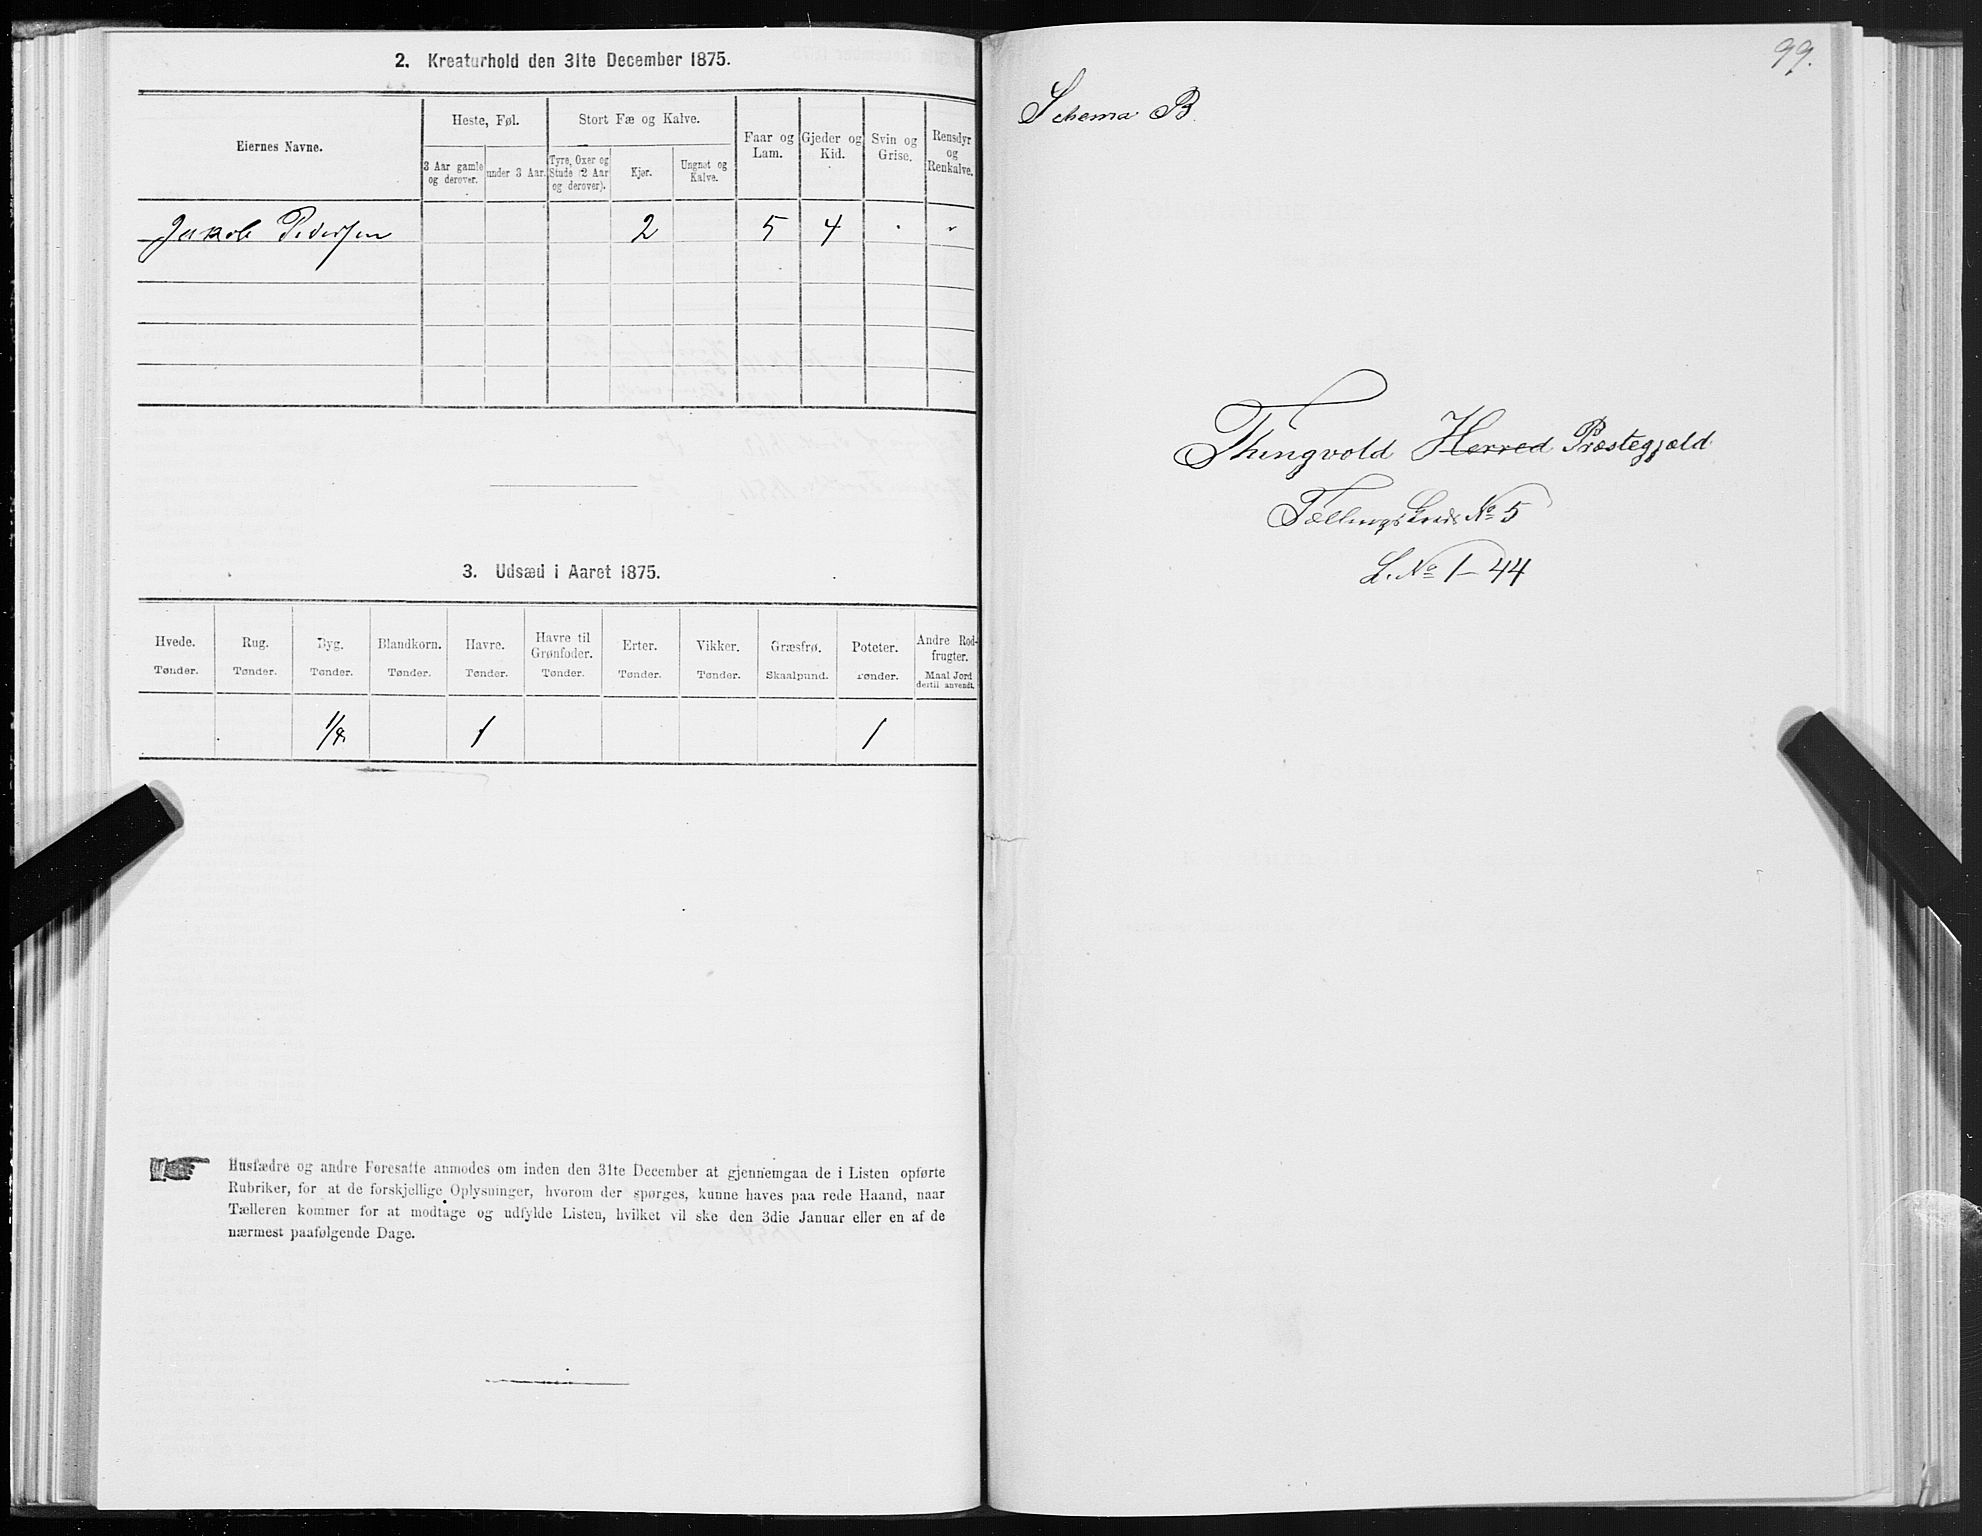 2. Kreaturhold den 31te December 1875.
Eiernes Navne.
Heste, Føl.
Stort Fæ og Kalve.
Faar og Lam.
Gjeder og Kid.
Svin og Grise.
Rensdyr og Renkalve.
3 Aar gamle og derover.
under 3 Aar.
Tyre, Oxer og Stude (2 Aar og derover).
Kjør.
Ungnøt og Kalve.
Jakob Pedersen 2 5 4 " "
3. Udsæd i Aaret 1875.
Hvede. Rug. Byg. Blandkorn. Havre. Havre til Grønfoder. Erter. Vikker. Græsfrø. Poteter. Andre Rodfrugter.
Tønder. Tønder. Tønder. Tønder. Tønder. Tønder. Tønder. Tønder. Skaalpund. Tønder. Maal Jord dertil anvendt.
1 1
Husfædre og andre Foresatte anmodes om inden den 31te December at gjennemgaa de i Listen opførte
Rubriker, for at de forskjellige Oplysninger, hvorom der spørges, kunne haves paa rede Haand, naar
Tælleren kommer for at modtage og udfylde Listen, hvilket vil ske den 3die Januar eller en af de
nærmest paafølgende Dage.
99.
Schema B.
Thingvold Herred Præstegjæld
Tællingskreds No 5
L. No 1-44